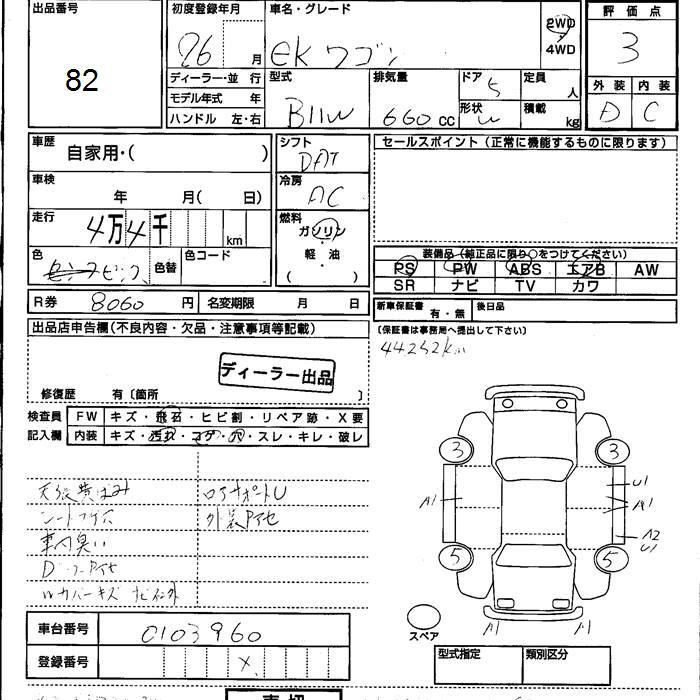 出品番号
82
初度登録年月
26 月
車名・グレード
eKワゴン
2WD
4WD
評価点
3
外装 内装
D C
ディーラー・並行
モデル年式 年
ハンドル 左・右
型式
B11W
排気量
660 cc
ドア
5
形状
定員
人
積載
kg
車歴
自家用・( )
車検
年 月( 日)
走行
4万4千 km
色
ピンク
色替
色コード
シフト
DAT
冷房
AC
燃料
ガソリン
軽・油
( )
セールスポイント(正常に機能するものに限ります)
装備品(純正品に限り○をつけてください)
PS PW ABS エアB AW
SR ナビ TV カワ
R券 8060 円 名変期限 月 日
新車保証書 有・無 後日品
(保証書は事務局へ提出して下さい)
44252km
出品店申告欄(不良内容・欠品・注意事項等記載)
ディーラー出品
修復歴 有〔箇所 〕
検査員記入欄
FW キズ・飛石・ヒビ割・リペア跡・X要
内装 キズ・汚れ・コゲ・穴・スレ・キレ・破レ
天張黄ばみ
シート
車内臭い
ロアサポートU
外装
3 3
5 5
A1
U1
A1
A2
U1
A1 A1
スペア
車台番号 0103960
登録番号 X
型式指定 類別区分